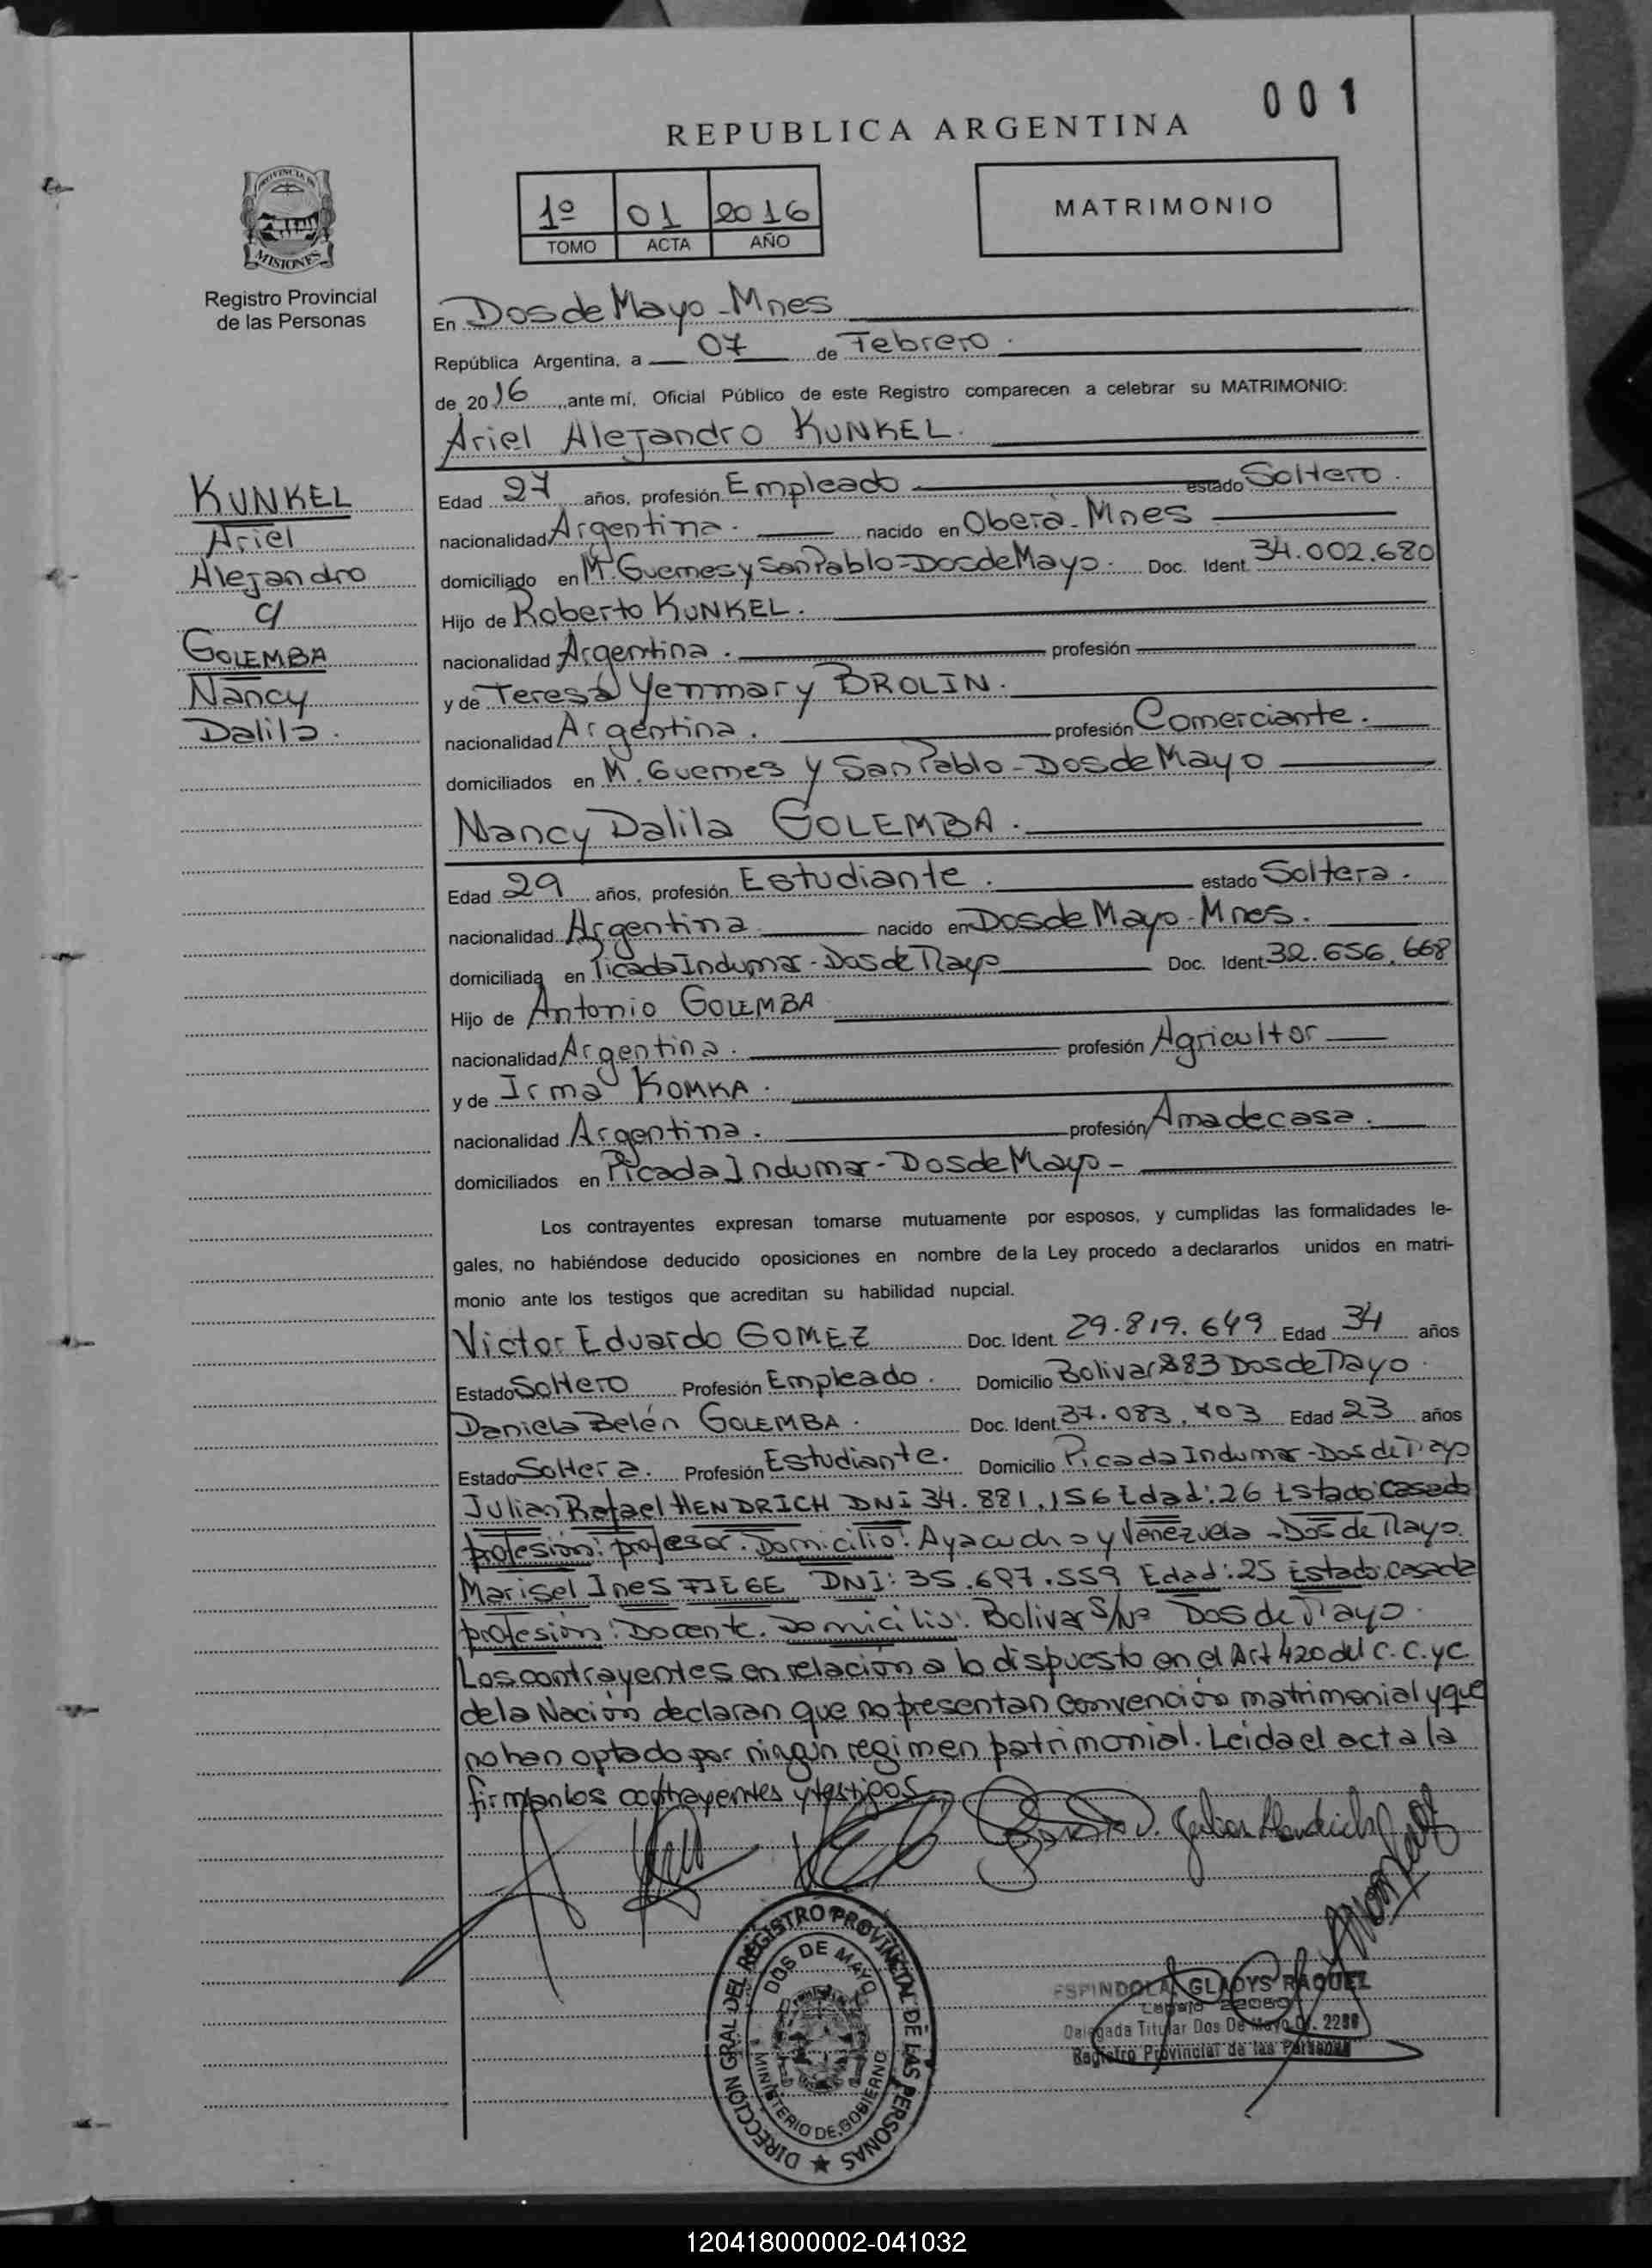 001
REPUBLICA ARGENTINA
1º 01 2016
TOMO ACTA AÑO
MATRIMONIO
PROVINCIA DE
MISIONES
Registro Provincial
de las Personas
En Dos de Mayo - Mnes
República Argentina, a 07 de Febrero.
de 2016, ante mí, Oficial Público de este Registro comparecen a celebrar su MATRIMONIO:
Ariel Alejandro KUNKEL.
KUNKEL
Ariel
Alejandro
c/
GOLEMBA
Nancy
Dalila.
Edad 27 años, profesión Empleado estado Soltero.
nacionalidad Argentina. nacido en Oberá - Mnes
domiciliado en M. Guemes y San Pablo - Dos de Mayo. Doc. Ident. 34.002.680
Hijo de Roberto KUNKEL.
nacionalidad Argentina. profesión
y de Teresa Yenmary BROLIN.
nacionalidad Argentina. profesión Comerciante.
domiciliados en M. Guemes y San Pablo - Dos de Mayo
Nancy Dalila GOLEMBA.
Edad 29 años, profesión Estudiante. estado Soltera.
nacionalidad Argentina nacido en Dos de Mayo - Mnes.
domiciliada en Picada Indumar - Dos de Mayo Doc. Ident. 32.656.668
Hijo de Antonio GOLEMBA
nacionalidad Argentina. profesión Agricultor
y de Irma KOMKA.
nacionalidad Argentina. profesión Ama de casa.
domiciliados en Picada Indumar - Dos de Mayo -
Los contrayentes expresan tomarse mutuamente por esposos, y cumplidas las formalidades le-
gales, no habiéndose deducido oposiciones en nombre de la Ley procedo a declararlos unidos en matri-
monio ante los testigos que acreditan su habilidad nupcial.
Victor Eduardo GOMEZ Doc. Ident. 29.819.649 Edad 34 años
Estado Soltero Profesión Empleado. Domicilio Bolivar 883 Dos de Mayo.
Daniela Belén GOLEMBA. Doc. Ident. 37.083.703 Edad 23 años
Estado Soltera. Profesión Estudiante. Domicilio Picada Indumar - Dos de Mayo
Julian Rafael HENDRICH DNI 34.881.156 Edad: 26 Estado: Casado
profesión: profesor. Domicilio: Ayacucho y Venezuela - Dos de Mayo.
Marisel Ines FIEGE DNI: 35.697.559 Edad: 25 Estado: Casada
profesión: Docente. Domicilio: Bolivar S/Nº Dos de Mayo.
Los contrayentes en relación a lo dispuesto en el Art 420 del C.C.y C.
de la Nación declaran que no presentan convención matrimonial y que
no han optado por ningún regimen patrimonial. Leida el acta la
firman los contrayentes y testigos
Julian Hendrich
DIRECCIÓN GRAL DEL REGISTRO PROVINCIAL DE LAS PERSONAS
DOS DE MAYO
MINISTERIO DE GOBIERNO
ESPINDOLA, GLADYS RAQUEL
Delegada Titular Dos De Mayo
Registro Provincial de las Personas
120418000002-041032